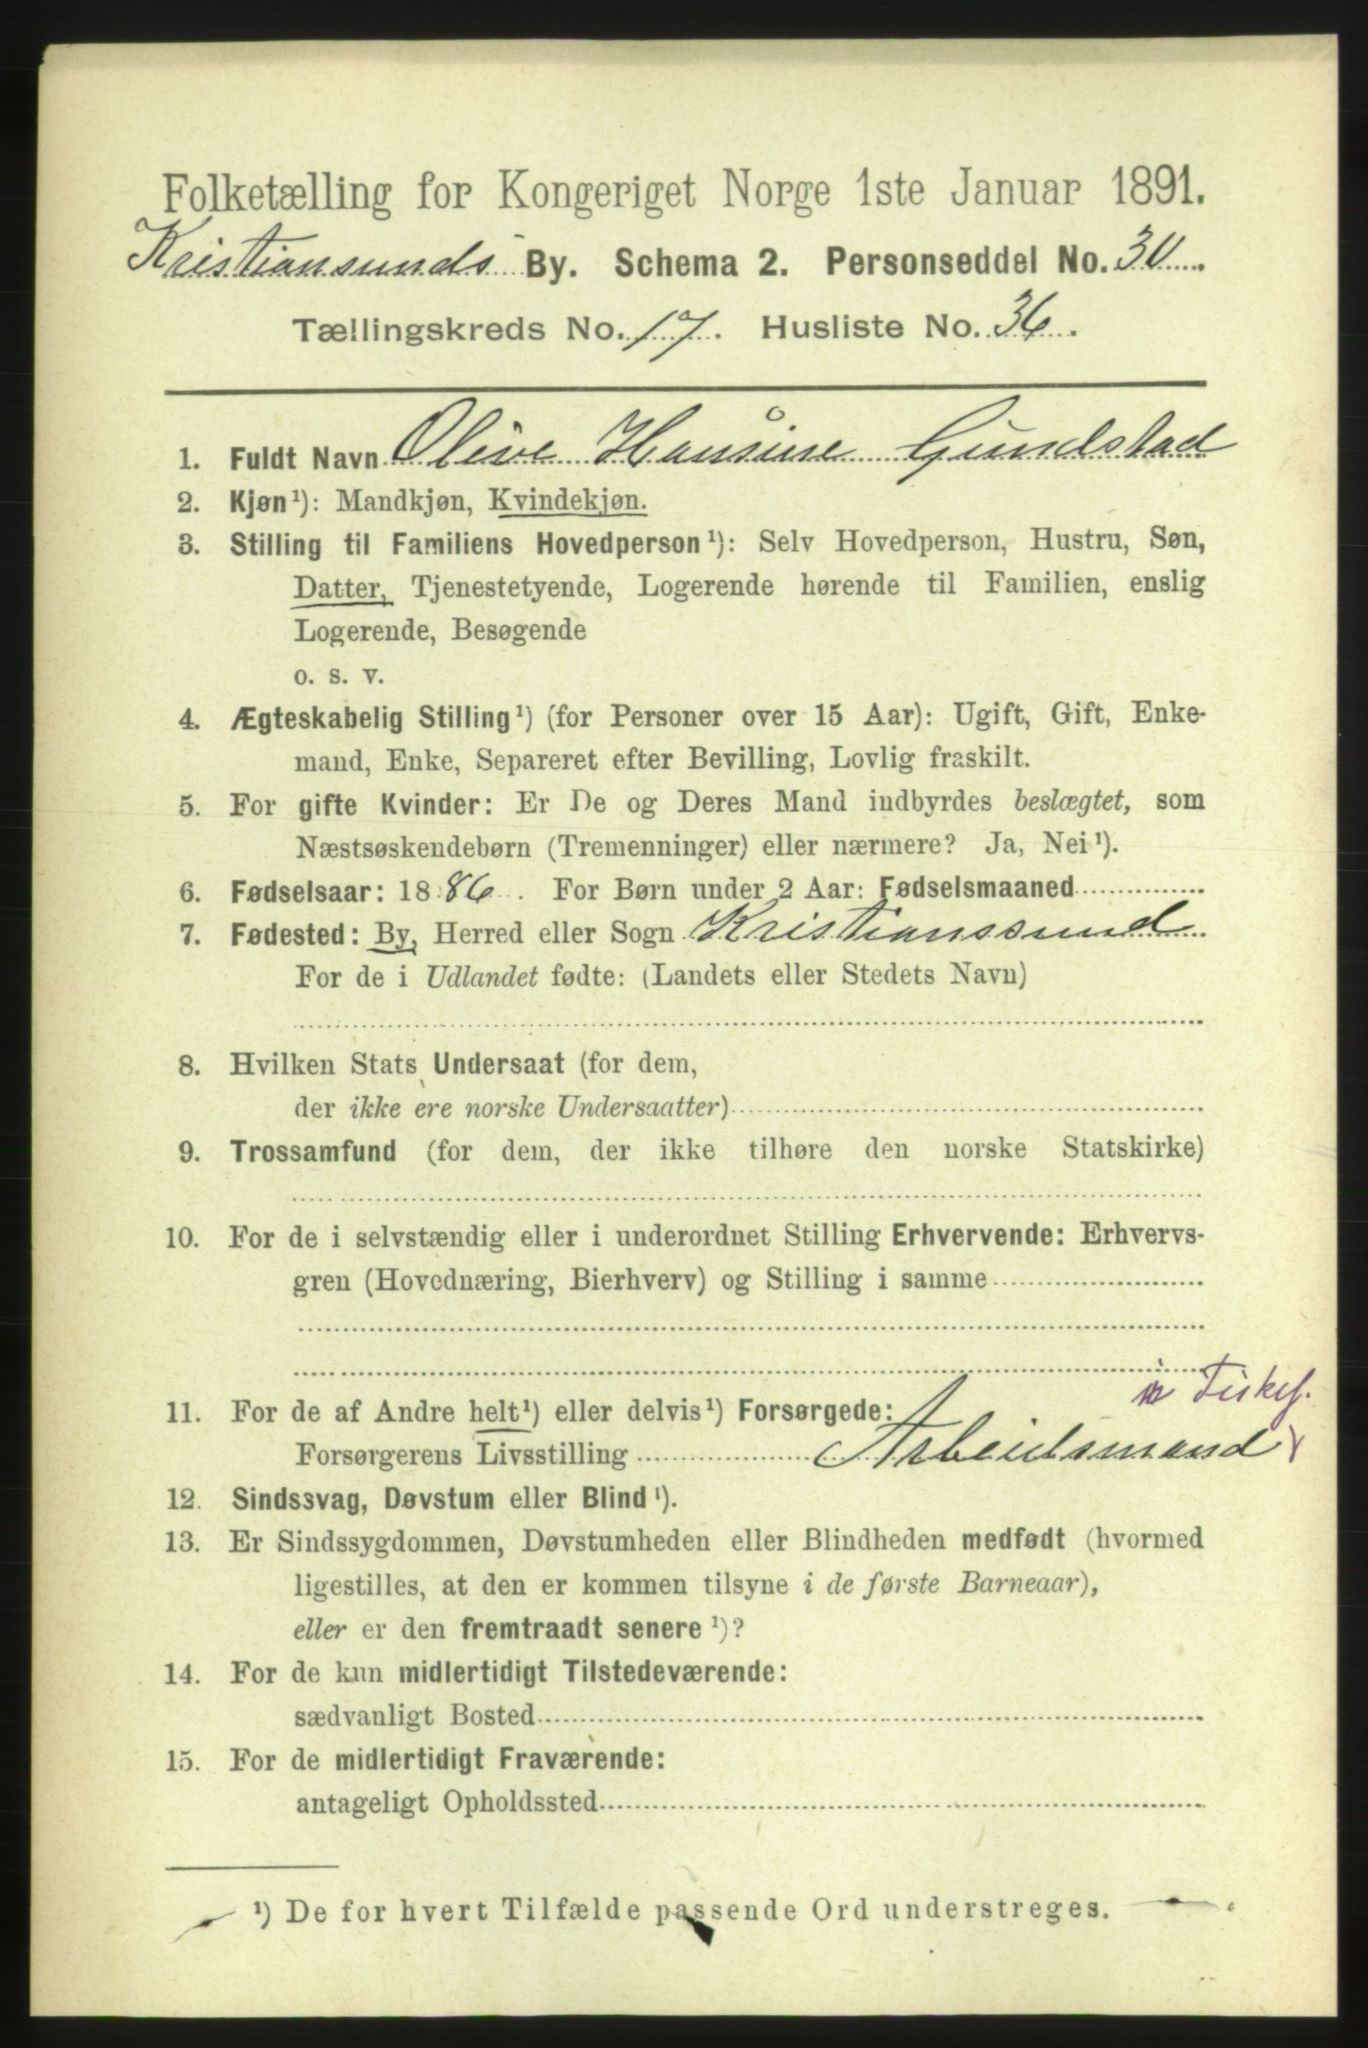 Folketælling for Kongeriget Norge 1ste Januar 1891.
Kristiansunds By. Schema 2. Personseddel No. 30.
Tællingskreds No. 17. Husliste No. 36.
1. Fuldt Navn Olive Hansine Gundstad
2. Kjøn¹): Mandkjøn, Kvindekjøn.
3. Stilling til Familiens Hovedperson¹): Selv Hovedperson, Hustru, Søn,
Datter, Tjenestetyende, Logerende hørende til Familien, enslig
Logerende, Besøgende
o. s. v.
4. Ægteskabelig Stilling¹) (for Personer over 15 Aar): Ugift, Gift, Enke-
mand, Enke, Separeret efter Bevilling, Lovlig fraskilt.
5. For gifte Kvinder: Er De og Deres Mand indbyrdes beslægtet, som
Næstsøskendebørn (Tremenninger) eller nærmere? Ja, Nei¹).
6. Fødselsaar: 1886. For Børn under 2 Aar: Fødselsmaaned
7. Fødested: By, Herred eller Sogn Kristianssund
For de i Udlandet fødte: (Landets eller Stedets Navn)
8. Hvilken Stats Undersaat (for dem,
der ikke ere norske Undersaatter)
9. Trossamfund (for dem, der ikke tilhøre den norske Statskirke)
10. For de i selvstændig eller i underordnet Stilling Erhvervende: Erhvervs-
gren (Hovednæring, Bierhverv) og Stilling i samme
11. For de af Andre helt¹) eller delvis¹) Forsørgede:
Forsørgerens Livsstilling Arbeidsmand
12. Sindssvag, Døvstum eller Blind¹).
13. Er Sindssygdommen, Døvstumheden eller Blindheden medfødt (hvormed
ligestilles, at den er kommen tilsyne i de første Barneaar),
eller er den fremtraadt senere¹)?
14. For de kun midlertidigt Tilstedeværende:
sædvanligt Bosted
15. For de midlertidigt Fraværende:
antageligt Opholdssted
¹) De for hvert Tilfælde passende Ord understreges.